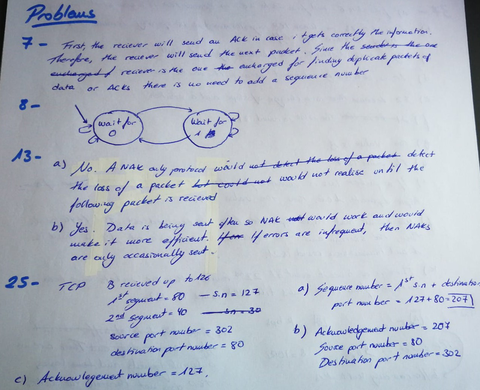 Problems
7 - First, the reciever will send an ACK in case it gets correctly the information.
Therefore, the reciever will send the next packet. Since the sender is the one
exchanged f reciever is the one the exchanged for finding duplicate packets of
data or ACKs there is no need to add a sequence number
8 -
wait for
0
Wait for
1
13 -
a) No. A NAK only protocol would not detect the loss of a packet detect
the loss of a packet but could not would not realise until the
following packet is recieved
b) Yes. Data is being sent often so NAK not would work and would
make it more efficient. If errors are infrequent, then NAKs
are only occasionally sent.
25 - TCP B recieved up to 126
1st segment = 80 — s.n = 127
2nd segment = 40 — s.n = 30
source port number = 302
destination port number = 80
a) Sequence number = 1st s.n + destination
port number = 127 + 80 = 207
b) Acknowledgement number = 207
Source port number = 80
Destination port number = 302
c) Acknowlegement number = 127.